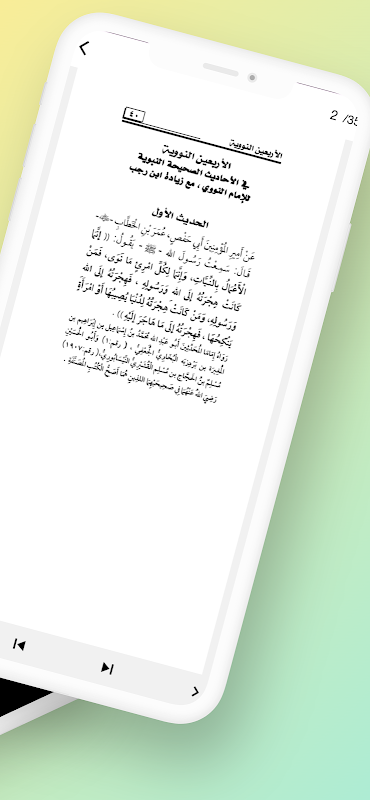 2 /35
الأربعين النووية
٤٠
الأربعين النووية
في الأحاديث الصحيحة النبوية
للإمام النووي ، مع زيادة ابن رجب
الحديث الأول
عَنْ أَمِيرِ الْمُؤْمِنِينَ أَبِي حَفْصٍ، عُمَرَ بْنِ الْخَطَّابِ -ﷺ-
قَالَ: سَمِعْتُ رَسُولَ الله - ﷺ - يَقُولُ: (( إِنَّمَا
الْأَعْمَالُ بِالنِّيَّاتِ، وَإِنَّمَا لِكُلِّ امْرِئٍ مَا نَوَى، فَمَنْ
كَانَتْ هِجْرَتُهُ إِلَى الله وَرَسُولِهِ ، فَهِجْرَتُهُ إِلَى الله
وَرَسُولِهِ، وَمَنْ كَانَتْ هِجْرَتُهُ لِدُنْيَا يُصِيبُهَا أَوْ امْرَأَةٍ
يَنْكِحُهَا ، فَهِجْرَتُهُ إِلَى مَا هَاجَرَ إِلَيْهِ )) .
رَوَاهُ إِمَامَا الْمُحَدِّثِينَ أَبُو عَبْدِ الله مُحَمَّدُ بْنُ إِسْمَاعِيل بن إِبْرَاهِيم بن
الْمُغِيرَة بن بَرْدِزبَه الْبُخَارِيُّ الْجُعْفِيُّ ، ( رقم:١) وَأَبُو الْحُسَيْنِ
مُسْلِمُ بْنُ الْحَجَّاجِ بن مُسْلِم الْقُشَيْرِيُّ النَّيْسَابُورِيُّ، ( رقم:١٩٠٧)
رَضِيَ اللهُ عَنْهُمَا فِي صَحِيحَيْهِمَا اللَّذَيْنِ هُمَا أَصَحُّ الْكُتُبِ الْمُصَنَّفَةِ .